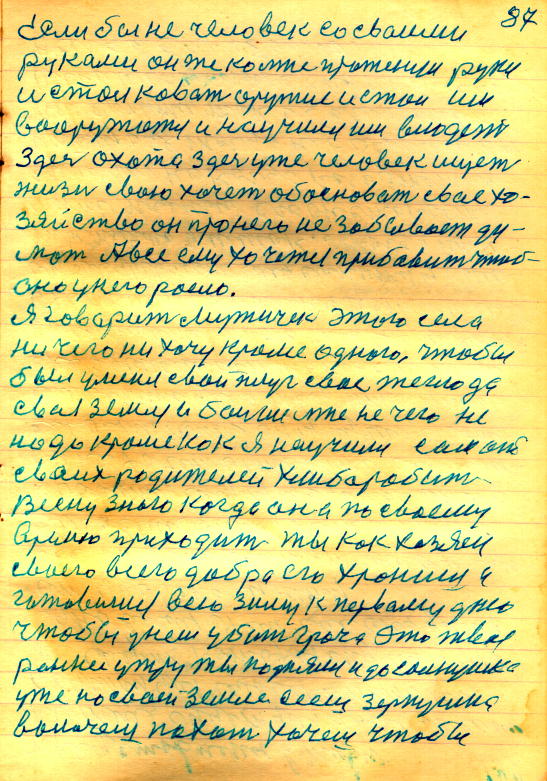 87
Если бы не человек со своими
руками он же коже протенул руки
и стои коват оружие и стои им
вооружатя и научился им влодет
Здеч охота Здеч уже человек ищет
жизн свою хочет обосноват свое хо-
зяйство он про него не забовает ду-
мот А все ему хочетя прибавит чтоб-
оно у него росло.
Я говарит Мужичек этого села
ни чего ни хочу кроме одного, чтобы
был у меня свой плуг свое тегло да
своя земля и больши мне не чего не
надо кроме кок я научился сам от
своих родителей хлиба робит
Весну знаю когда она по своему
время приходит ты как хозяен
своего всего добра его храниш и
готовился всю зиму к первому дню
чтобы днеш убит грача это твое
ранне утру ты поднялся и до солнушка
уже по своей земле сееш зернушка
волочеш пахот хочеш чтобы